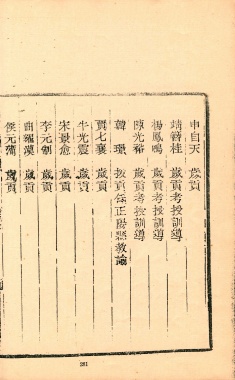 申自天 歲貢
靖簪桂 歲貢考授訓導
楊鳳鳴 歲貢考授訓導
陳光裕 歲貢考授訓導
韓璟 拔貢任正陽縣教諭
賈七襄 歲貢
牛光震 歲貢
宋景愈 歲貢
李元 歲貢
漢 歲貢
侯元 歲貢
281